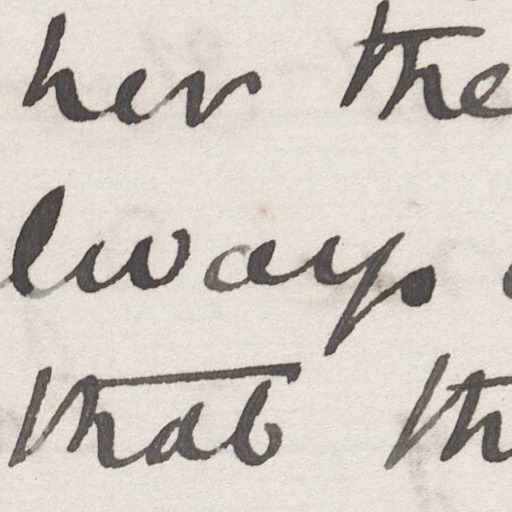 her the
lways
that th